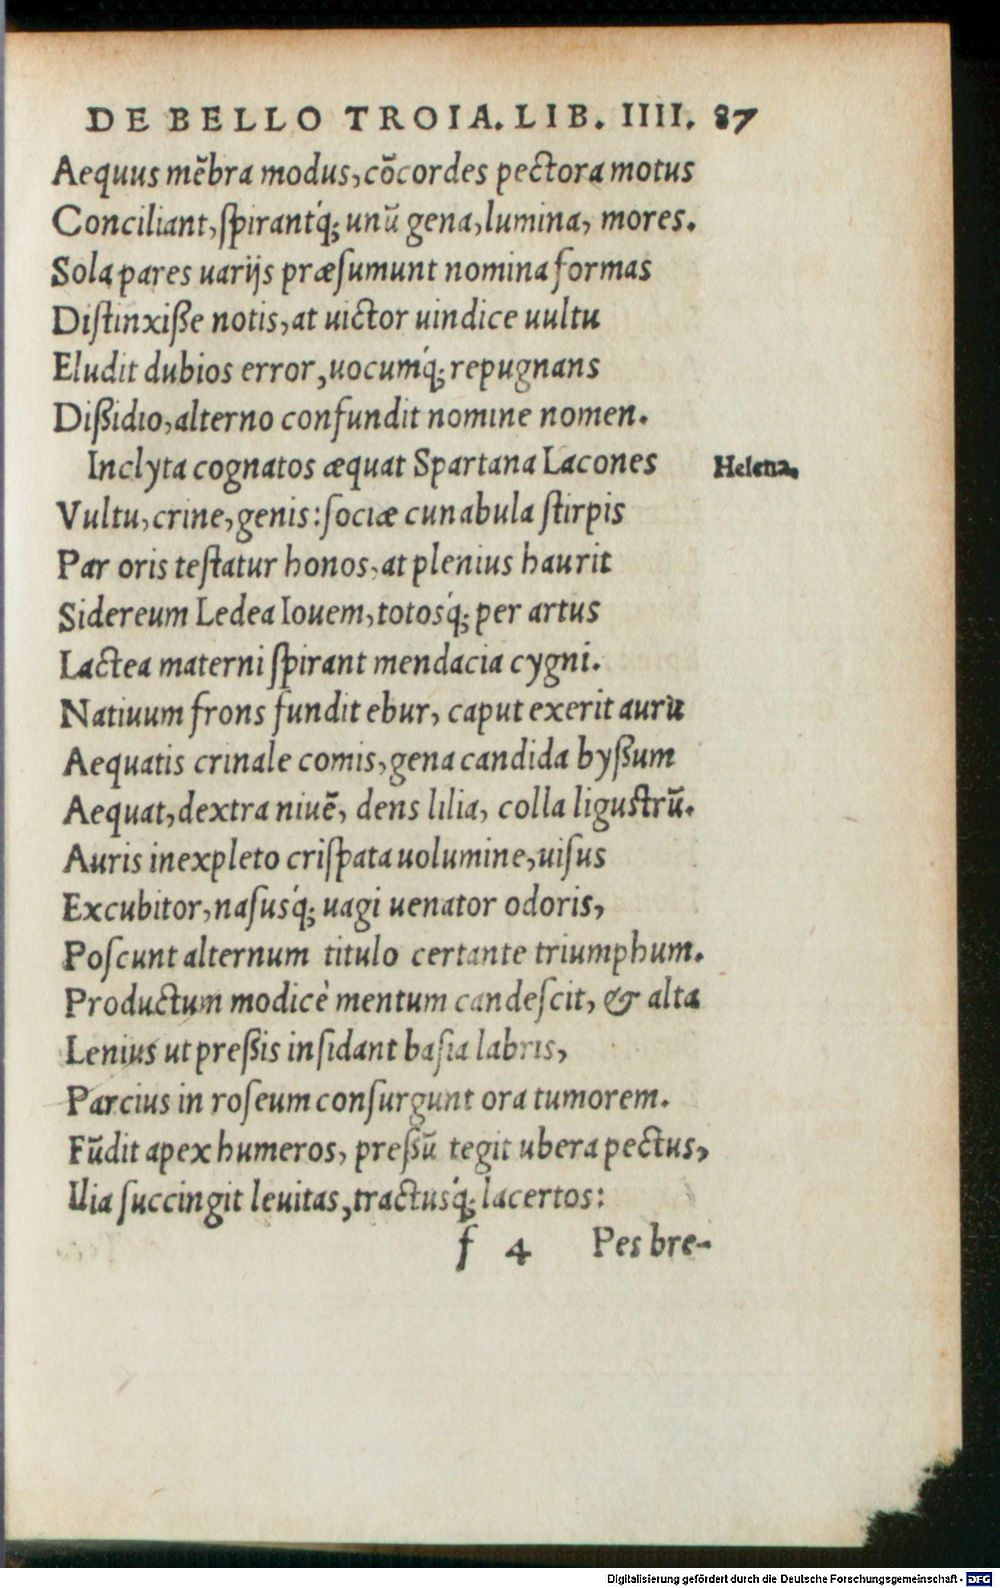 DE BELLO TROIA. LIB. IIII. 87
Aequus mēbra modus, cōcordes pectora motus
Conciliant, ſpirantq́; unū gena, lumina, mores.
Sola pares uarijs præſumunt nomina formas
Diſtinxiße notis, at uictor uindice uultu
Eludit dubios error, uocumq́; repugnans
Dißidio, alterno confundit nomine nomen.
Inclyta cognatos æquat Spartana Lacones
Helena.
Vultu, crine, genis: ſociæ cunabula ſtirpis
Par oris teſtatur honos, at plenius haurit
Sidereum Ledea Iouem, totosq́; per artus
Lactea materni ſpirant mendacia cygni.
Natiuum frons fundit ebur, caput exerit aurū
Aequatis crinale comis, gena candida byßum
Aequat, dextra niuē, dens lilia, colla liguſtrū.
Auris inexpleto criſpata uolumine, uiſus
Excubitor, naſusq́; uagi uenator odoris,
Poſcunt alternum titulo certante triumphum.
Productum modicè mentum candeſcit, & alta
Lenius ut preßis inſidant baſia labris,
Parcius in roſeum conſurgunt ora tumorem.
Fūdit apex humeros, preßū tegit ubera pectus,
Ilia ſuccingit leuitas, tractusq́; lacertos:
f 4 Pes bre-
Digitalisierung gefördert durch die Deutsche Forschungsgemeinschaft - DFG